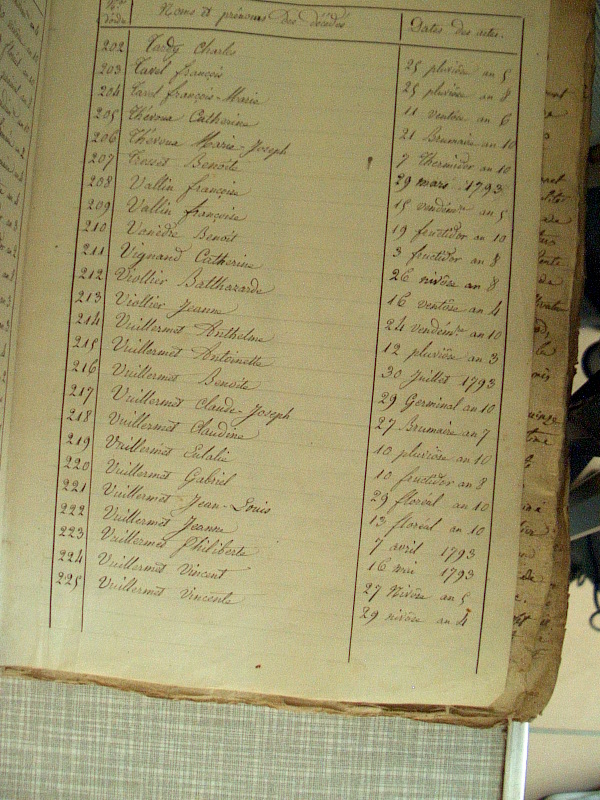 N.os d'ordre Noms et prénoms des décédés Dates des actes
202 Tardy Charles 25 pluviôse an 5
203 Tavel françois 25 pluviôse an 8
204 Tavel françois-Marie 11 ventôse an 6
205 Thévoux Catherine 21 Brumaire an 10
206 Thévoux Marie-Joseph 7 Thermidor an 10
207 Benoîte 29 mars 1793
208 Vallin françoise 15 vendém.re an 5
209 Vallin françoise 19 fructidor an 10
210 Benoît 3 fructidor an 8
211 Vignand Catherine 26 nivôse an 8
212 Viollier Balthazarde 16 ventôse an 4
213 Viollier Jeanne 24 vendém.re an 10
214 Vuillermet Anthelme 12 pluviôse an 3
215 Vuillermet Antoinette 30 Juillet 1793
216 Vuillermet Benoîte 29 Germinal an 10
217 Vuillermet Claude-Joseph 27 Brumaire an 7
218 Vuillermet Claudine 10 pluviôse an 10
219 Vuillermet Eulalie 10 fructidor an 8
220 Vuillermet Gabriel 29 floréal an 10
221 Vuillermet Jean-Louis 13 floréal an 10
222 Vuillermet Jeanne 7 avril 1793
223 Vuillermet Philiberte 16 mai 1793
224 Vuillermet Vincent 27 Nivôse an 5
225 Vuillermet Vincente 29 nivôse an 4